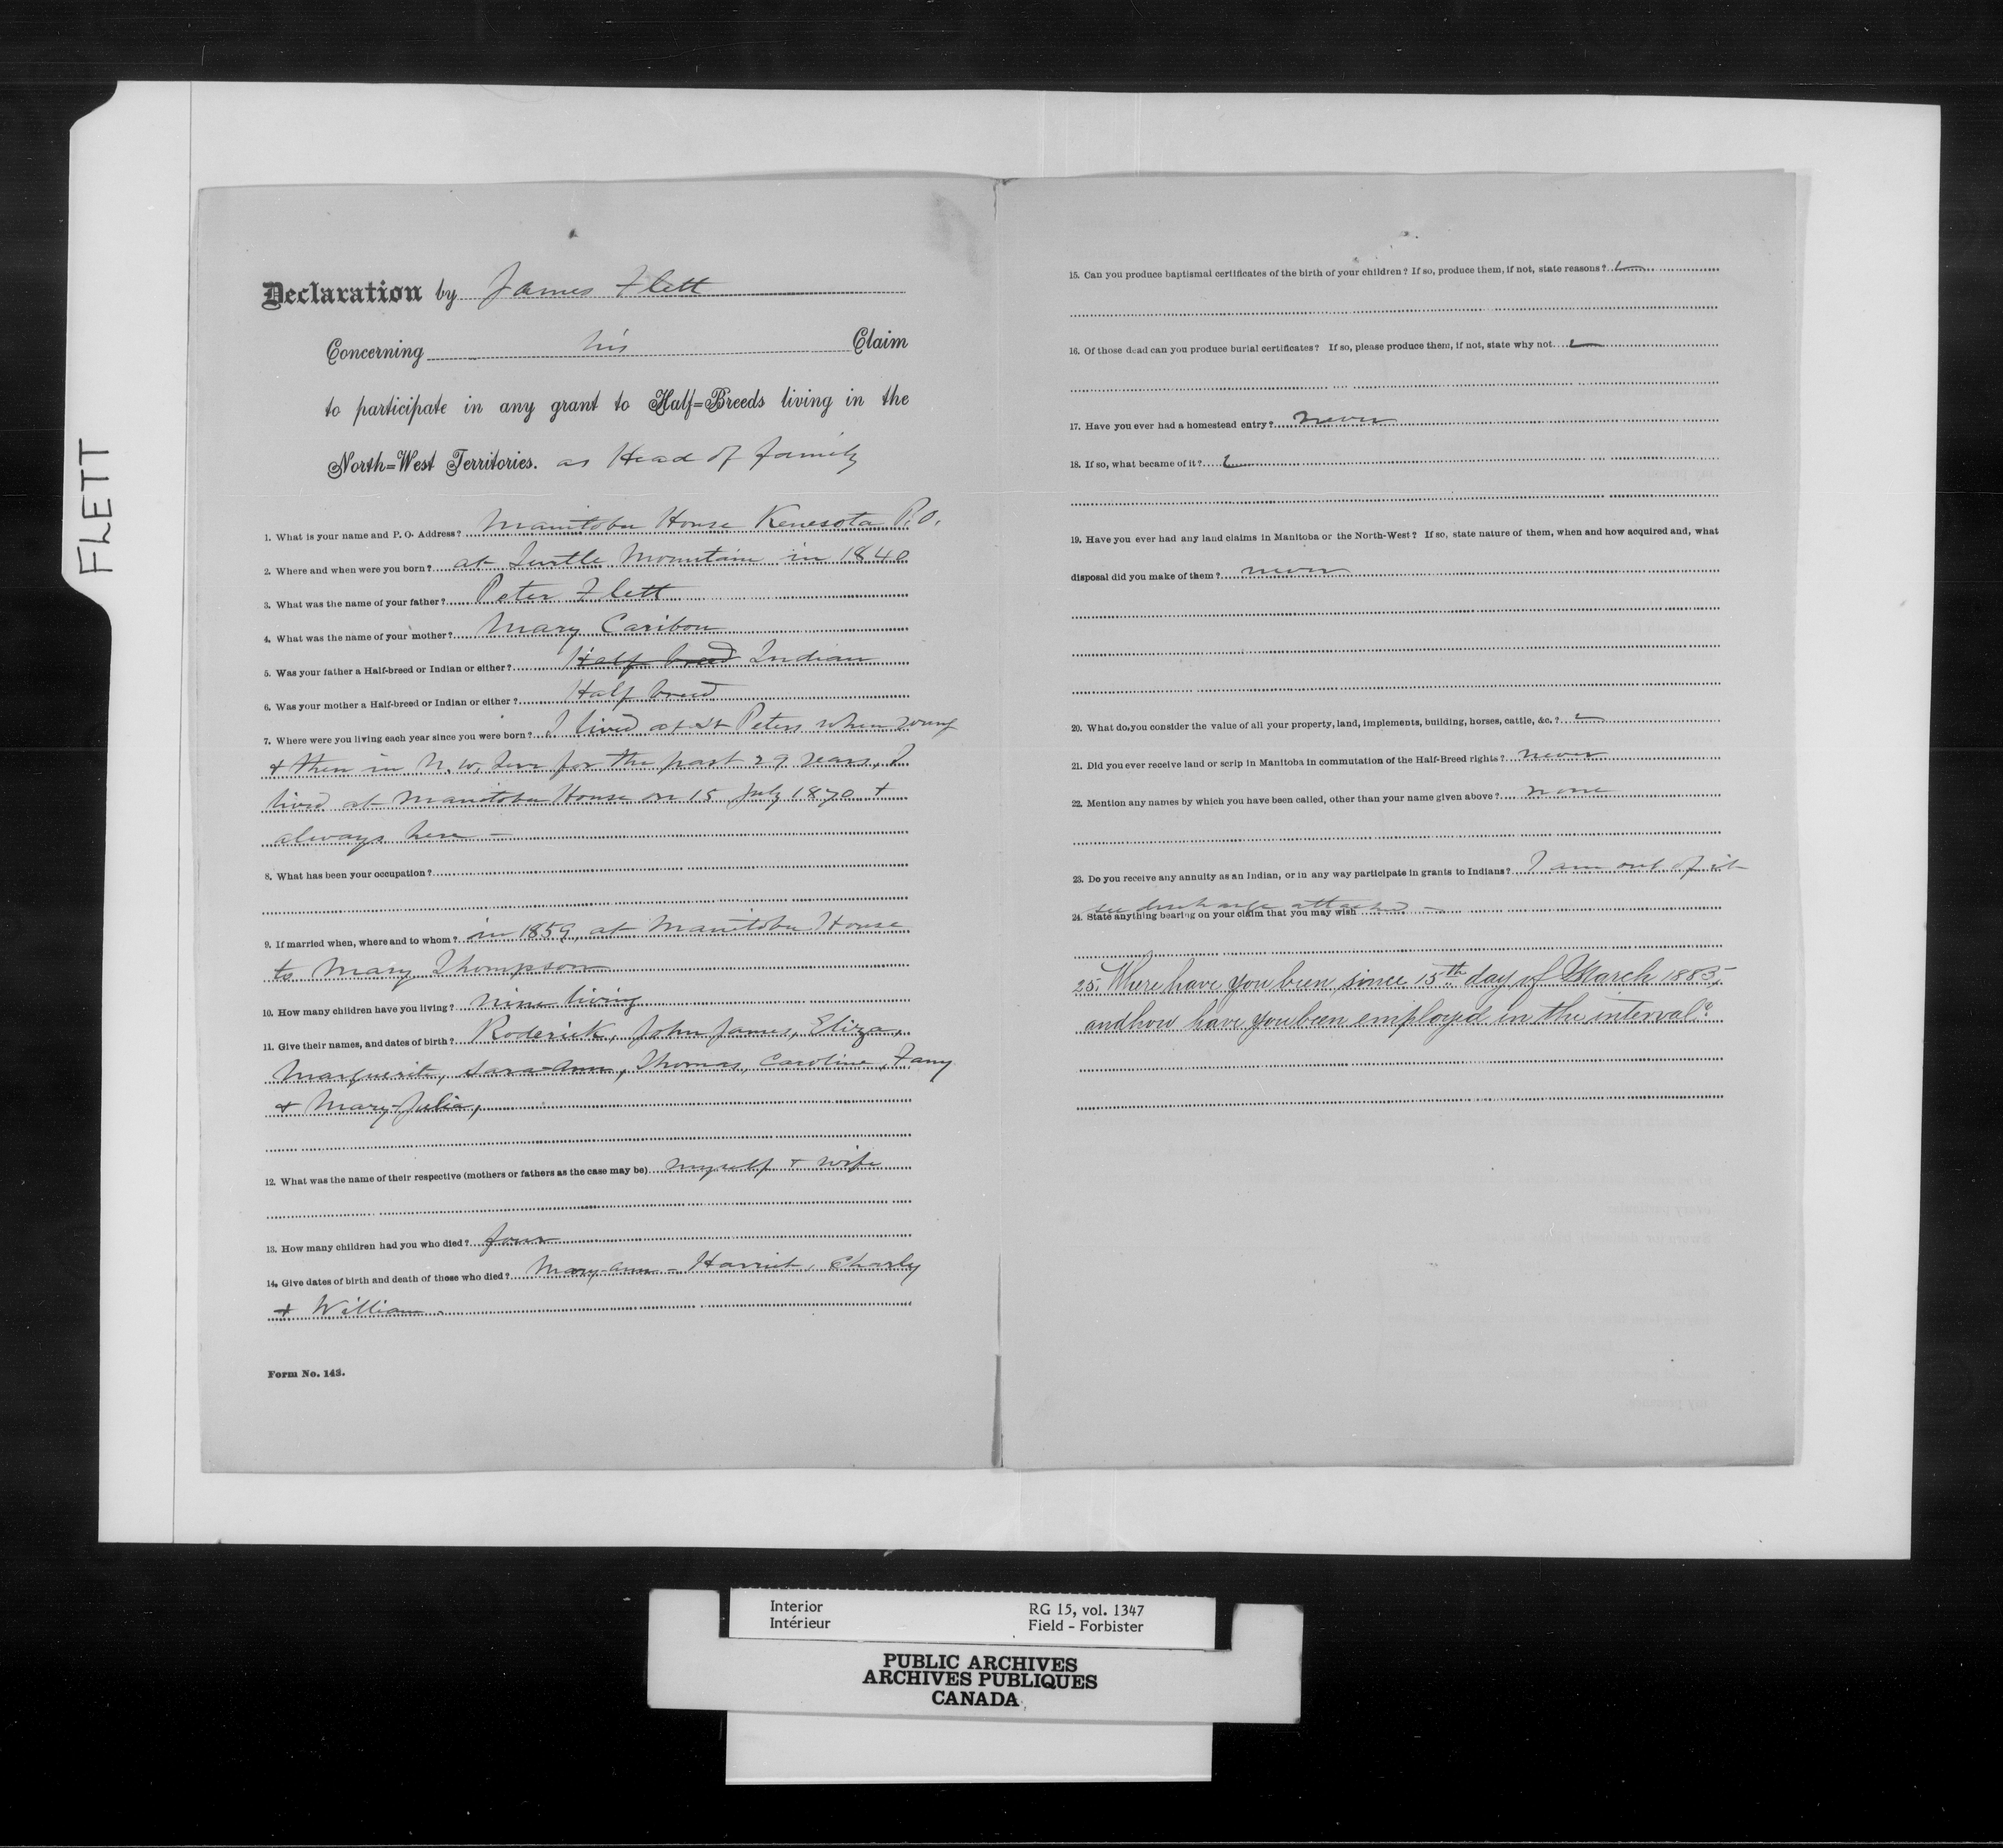 FLETT
Declaration by James Flett
Concerning his Claim
to participate in any grant to Half=Breeds living in the
North=West Territories. as Head of family
1. What is your name and P. O. Address? Manitoba House Kenesota P.O.
2. Where and when were you born? at Turtle Mountain in 1840
3. What was the name of your father? Peter Flett
4. What was the name of your mother? Mary Caribou
5. Was your father a Half-breed or Indian or either? Half breed Indian
6. Was your mother a Half-breed or Indian or either? Half breed
7. Where were you living each year since you were born? I lived at St Peters when young
& then in N.W. Terr for the past 29 years, I
lived at Manitoba House on 15 July 1870 &
always here —
8. What has been your occupation?
9. If married when, where and to whom? in 1859, at Manitoba House
to Mary Thompson
10. How many children have you living? nine living
11. Give their names, and dates of birth? Roderick, John James, Eliza,
Marguerite, Sara-Ann, Thomas, Caroline, Fany
& Mary-Julia,
12. What was the name of their respective (mothers or fathers as the case may be) myself & wife
13. How many children had you who died? four
14. Give dates of birth and death of those who died? Mary-Ann - Harriet, Charly
& William.
Form No. 143.
15. Can you produce baptismal certificates of the birth of your children? If so, produce them, if not, state reasons?
16. Of those dead can you produce burial certificates? If so, please produce them, if not, state why not.
17. Have you ever had a homestead entry? never
18. If so, what became of it?
19. Have you ever had any land claims in Manitoba or the North-West? If so, state nature of them, when and how acquired and, what
disposal did you make of them? never
20. What do you consider the value of all your property, land, implements, building, horses, cattle, &c.?
21. Did you ever receive land or scrip in Manitoba in commutation of the Half-Breed rights? never
22. Mention any names by which you have been called, other than your name given above? none
23. Do you receive any annuity as an Indian, or in any way participate in grants to Indians? I am out of it
see discharge attached —
24. State anything bearing on your claim that you may wish
25. Where have you been since 15th day of March 1885,
and how have you been employed in the interval?
Interior RG 15, vol. 1347
Intérieur Field - Forbister
PUBLIC ARCHIVES
ARCHIVES PUBLIQUES
CANADA